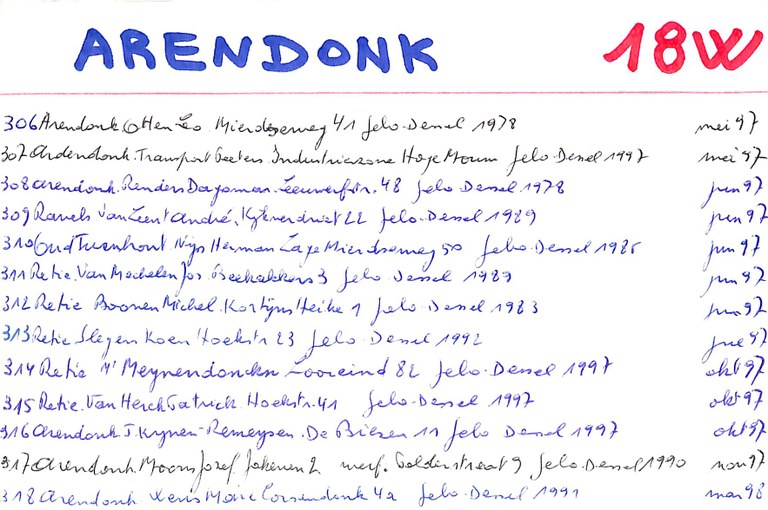 ARENDONK 18W
306 Arendonk Otten Leo Mierdseweg 41 Jelo-Dessel 1978 mei 97
307 Ardendonk. Transport Geeten. Industriezone Hoge Mouw Jelo-Dessel 1997 mei 97
308 Arendonk. Renders Dagomar. Leeuwerikstr. 48 Jelo Dessel 1978 jun 97
309 Ravels Van Leent André, 22 Jelo-Dessel 1989 jun 97
310 Oud Turnhout Nijs Herman Lage Mierdseweg 50 Jelo-Dessel 1985 jun 97
311 Retie. Van Mechelen Jos Beekakkers 3 Jelo Dessel 1989 jun 97
312 Retie Boonen Michel. Kortijns Heike 1 Jelo Dessel 1983 jun 97
313 Retie Slegers Koen Hoekstr 23 Jelo-Dessel 1992 97
314 Retie Meynendonckx Looreind 82 Jelo-Dessel 1997 okt 97
315 Retie. Van Herck Patrick. Hoekstr. 41 Jelo-Dessel 1997 okt 97
316 Arendonk J. Krynen-Remeysen. De Biezen 11 Jelo Dessel 1997 okt 97
317 Arendonk. Moons Jozef 2 werf. Gelderstraat 9 Jelo-Dessel 1990 nov 97
318 Arendonk. Maria Corsendonk 4a Jelo-Dessel 1991 mar 98